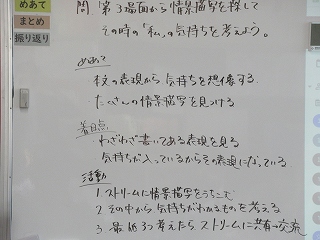 めあて
まとめ
振り返り
問 第3場面から情景描写を探して
その時の「私」の気持ちを考えよう。
めあて
本文の表現から気持ちを想像する
たくさんの情景描写を見つける
着目点
・わざわざ書いてある表現を見る
・気持ちが入っているからその表現になっている
活動
1. ストリームに情景描写をうちこむ
2 その中から気持ちがわかるものを考える
3 最低3つ考えたらストリームに共有→交流